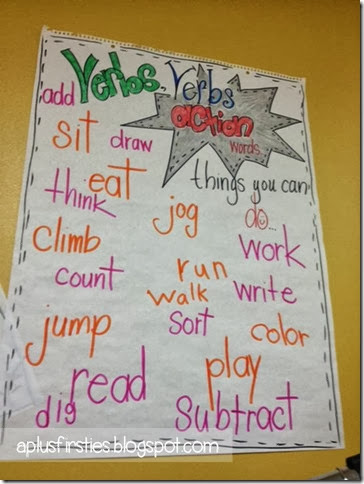 Verbs, Verbs
add
action
words
sit draw
eat
things you can
do...
think
jog
climb
work
count
run
walk
write
jump
sort
color
read
play
dig
subtract
aplusfirsties.blogspot.com